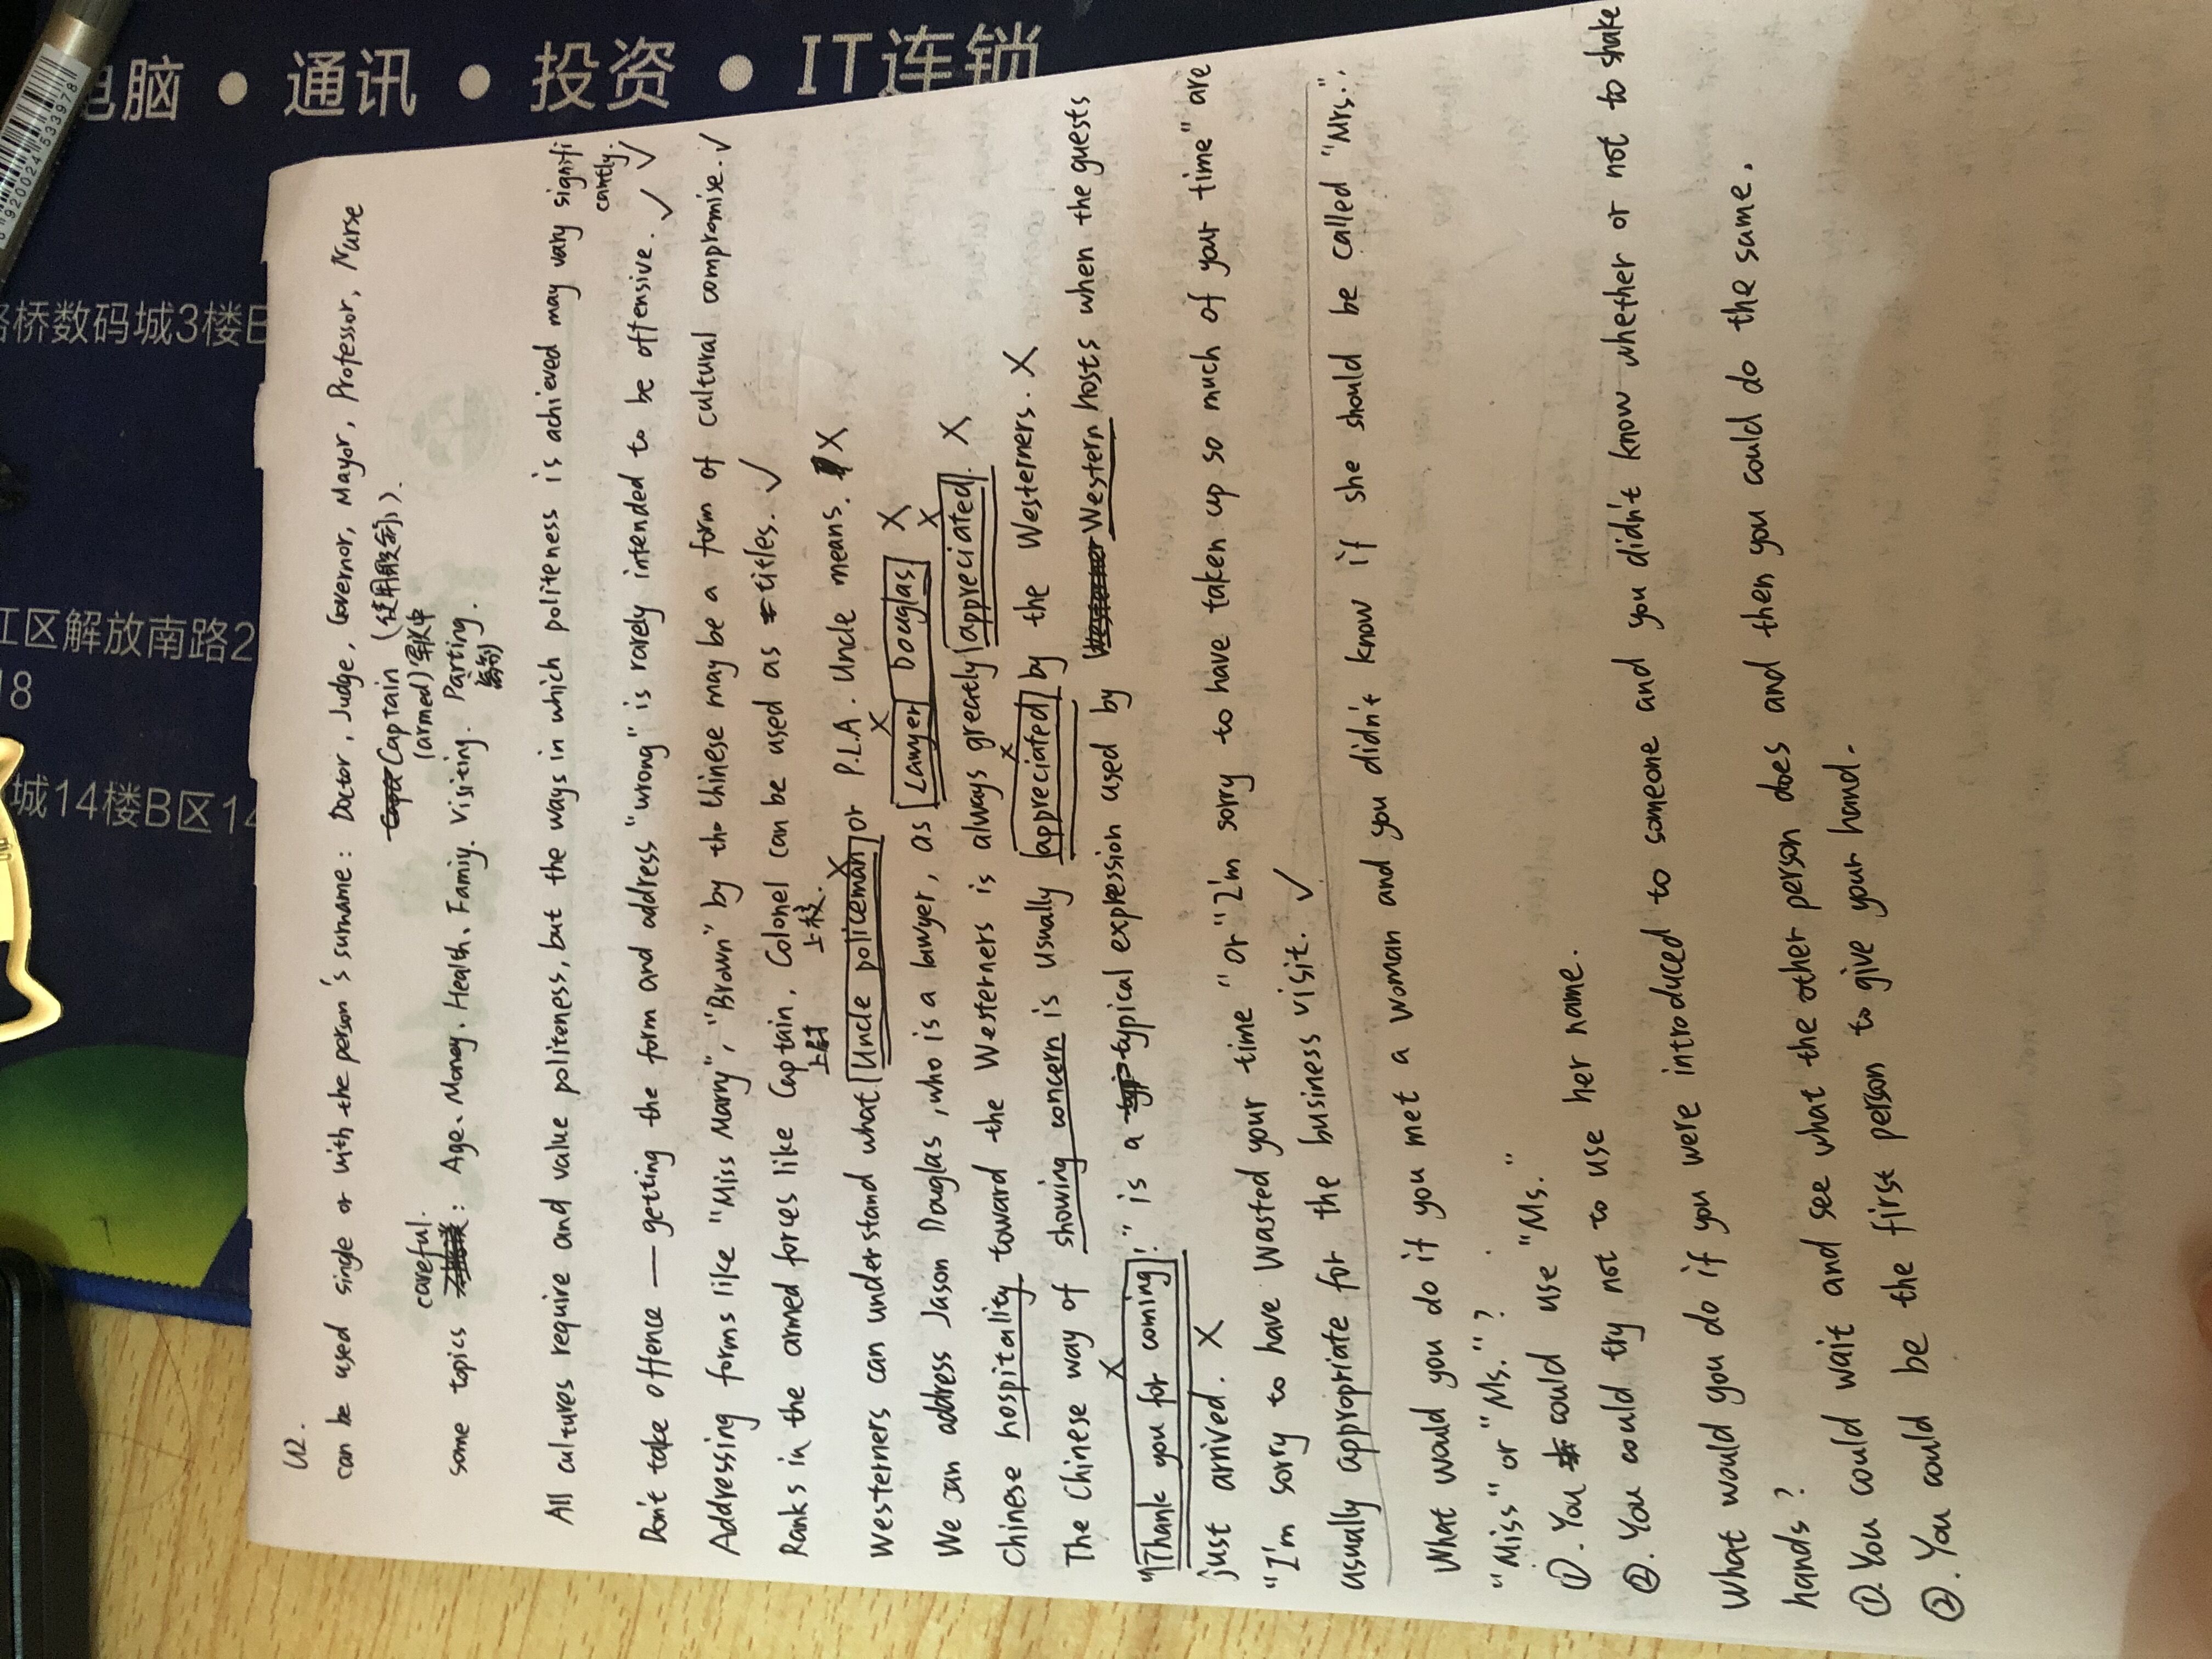 U2.
can be used single or with the person's surname: Doctor, Judge, Governor, Mayor, Professor, Nurse
Captain (使用股劍).
(armed) 军队中
careful.
some topics : Age、Money、Health、Famiy. Visiting. Parting.
告别
All cultures require and value politeness, but the ways in which politeness is achieved may vary signifi
cantly. ✓
Don't take offence — getting the form and address "wrong" is rarely intended to be offensive. ✓
Addressing forms like "Miss Marry", "Brown" by the Chinese may be a form of cultural compromise. ✓
Ranks in the armed forces like Captain, Colonel can be used as titles. ✓
上尉 上校
Westerners can understand what Uncle policeman or P.L.A. Uncle means. X
We can address Jason Douglas, who is a lawyer, as Lawyer Douglas X
Chinese hospitality toward the Westerners is always greatly appreciated. X
The Chinese way of showing concern is usually appreciated by the Westerners. X
"Thank you for coming!" is a typical expression used by Western hosts when the guests
just arrived. X
"I'm sorry to have wasted your time" or "I'm sorry to have taken up so much of your time" are
usually appropriate for the business visit. ✓
What would you do if you met a woman and you didn't know if she should be called "Mrs.",
"Miss" or "Ms."?
①. You could use "Ms."
②. You could try not to use her name.
What would you do if you were introduced to someone and you didn't know whether or not to shake
hands?
①. You could wait and see what the other person does and then you could do the same.
②. You could be the first person to give your hand.
电脑 ● 通讯 ● 投资 ● IT连锁
路桥数码城3楼B
江区解放南路2
城14楼B区14
18
6 920024 533978